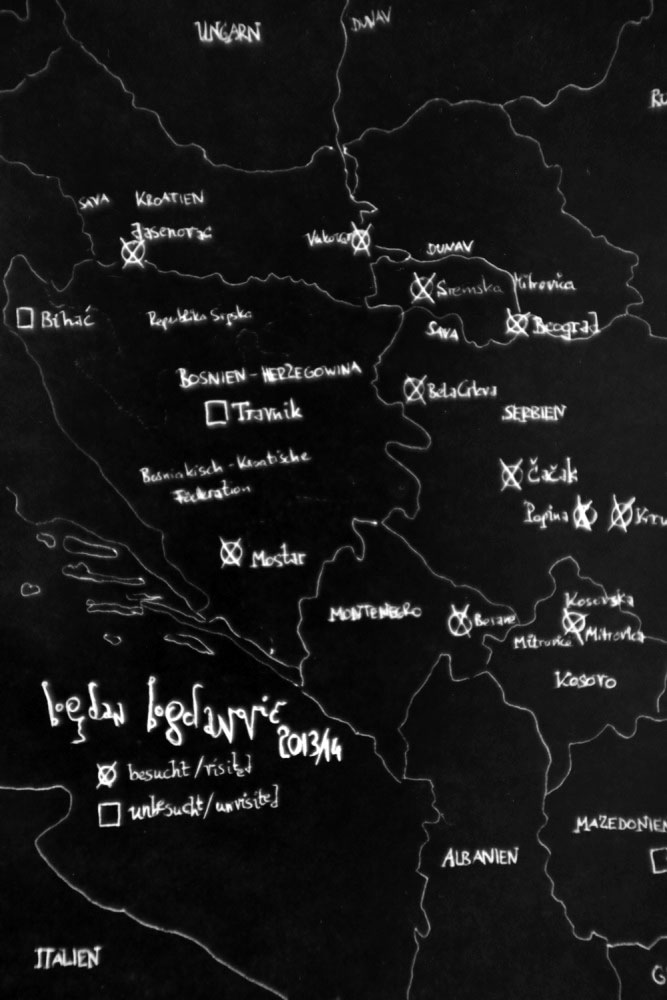 UNGARN
DUNAV
SAVA
KROATIEN
Jasenovac
Vukovar
DUNAV
Sremska Mitrovica
SAVA
Beograd
Bihać
Republika Srpska
BOSNIEN-HERZEGOWINA
Travnik
SERBIEN
Bosniakisch-Kroatische
Föderation
Čačak
Popina
Mostar
MONTENEGRO
Berane
Kosovska
Mitrovica
Mitrovica
Kosovo
bogdan bogdanović
2013/14
besucht/visited
unbesucht/unvisited
MAZEDONIEN
ALBANIEN
ITALIEN